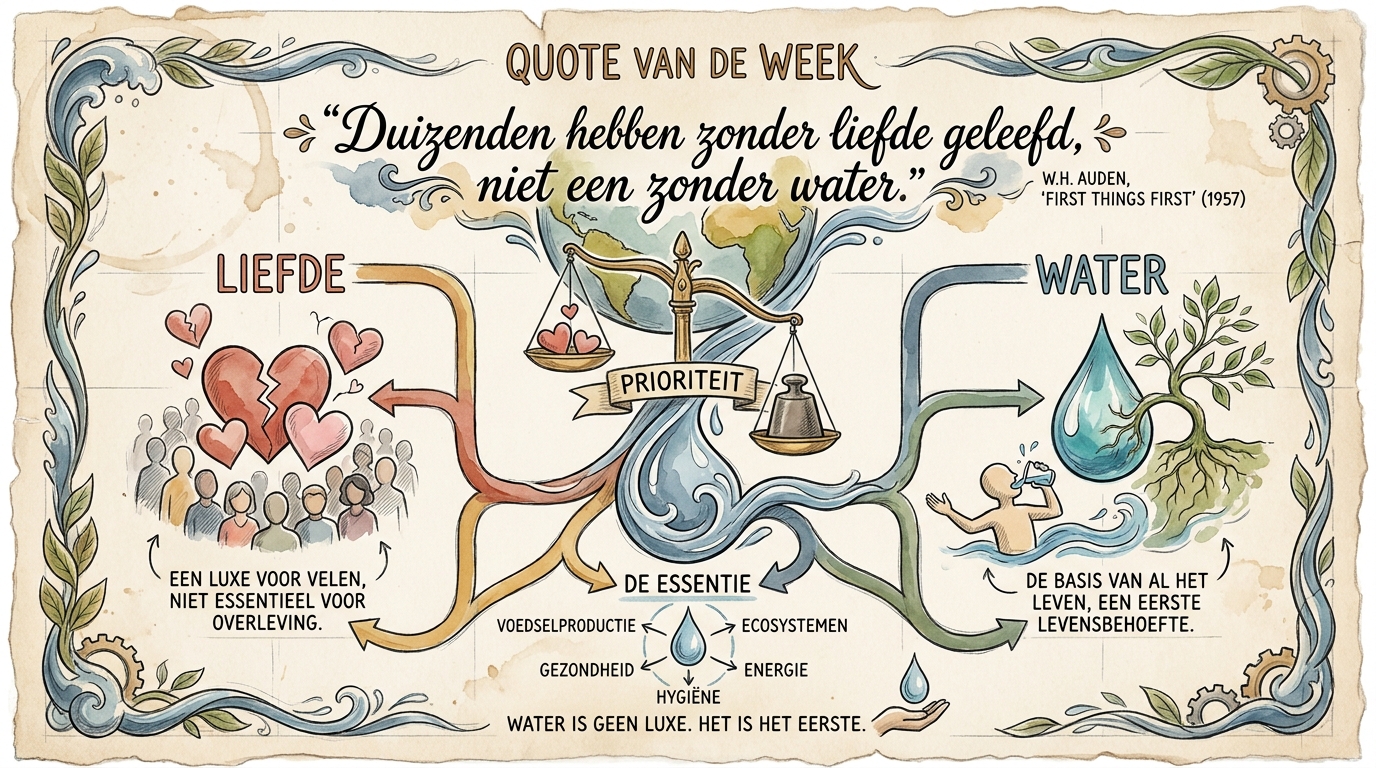 QUOTE VAN DE WEEK
“Duizenden hebben zonder liefde geleefd,
niet een zonder water.”
W.H. AUDEN,
‘FIRST THINGS FIRST’ (1957)
LIEFDE
WATER
PRIORITEIT
EEN LUXE VOOR VELEN,
NIET ESSENTIEEL VOOR
OVERLEVING.
DE BASIS VAN AL HET
LEVEN, EEN EERSTE
LEVENSBEHOEFTE.
DE ESSENTIE
VOEDSELPRODUCTIE
ECOSYSTEMEN
GEZONDHEID
ENERGIE
HYGIËNE
WATER IS GEEN LUXE. HET IS HET EERSTE.